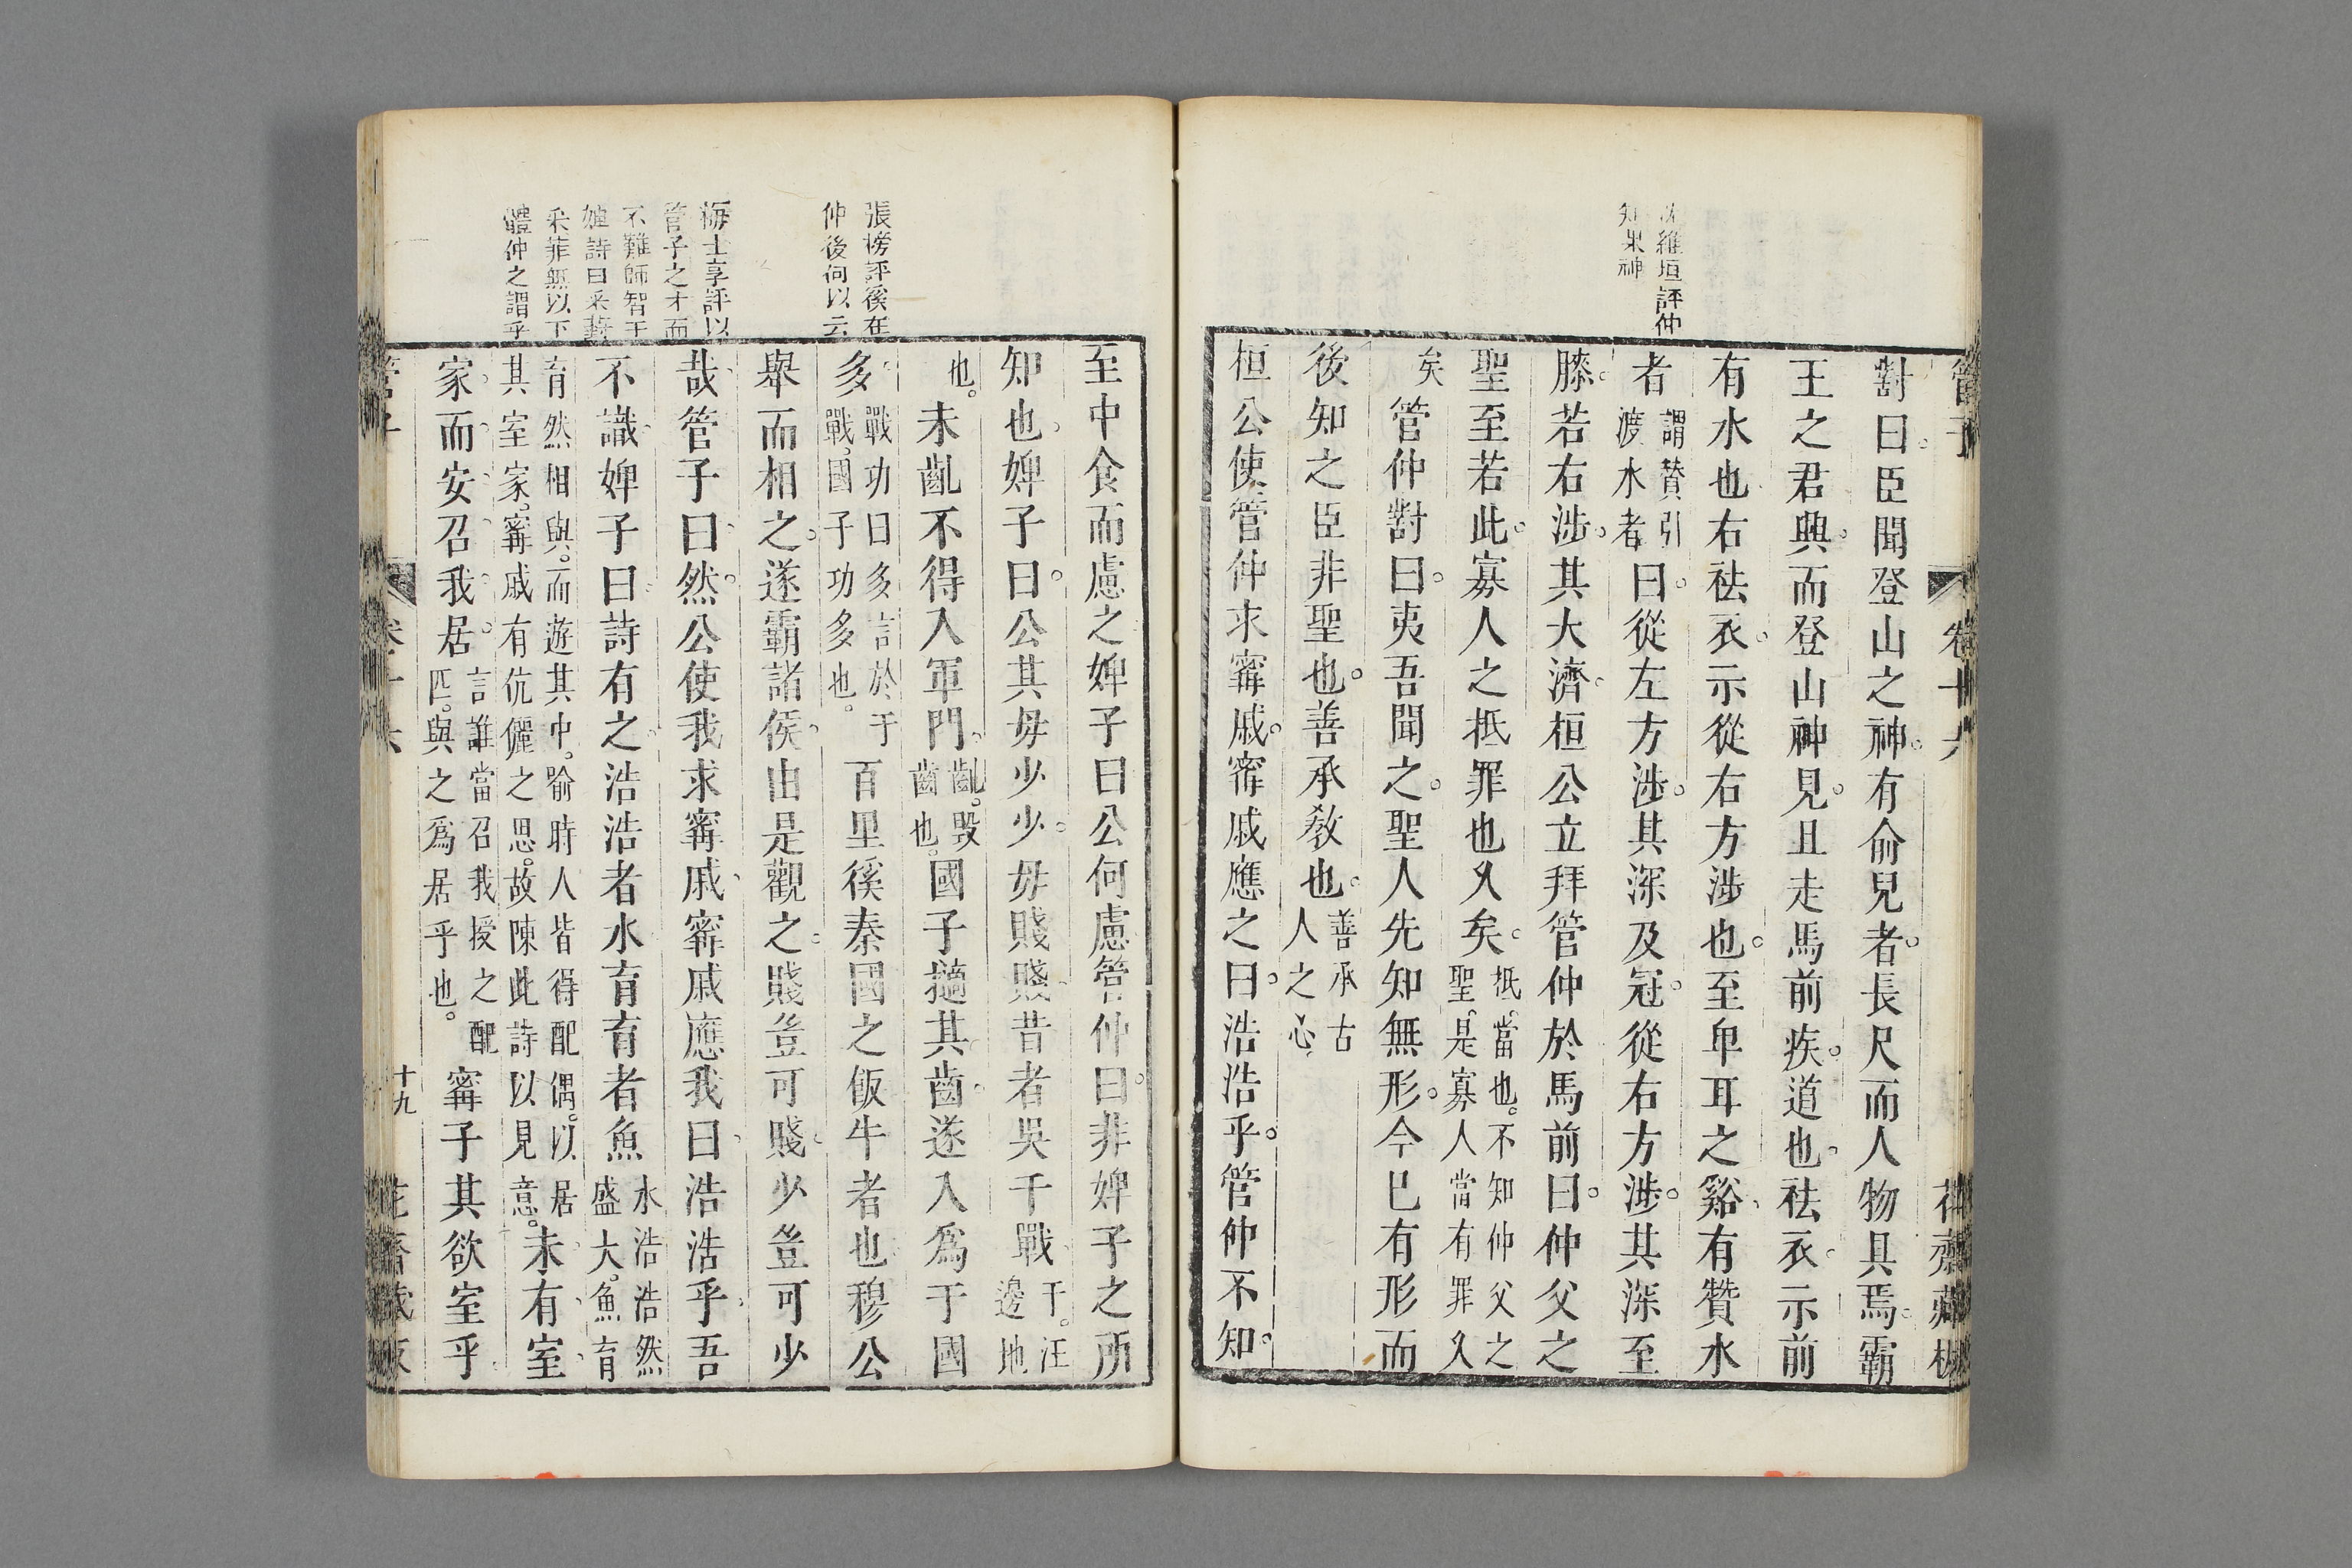 管子
卷十六
花齋藏板
沈維垣評仲
知果神
對曰臣聞登山之神有俞兒者長尺而人物具焉霸
王之君興而登山神見且走馬前疾道也袪衣示前
有水也右袪衣示從右方涉也至卑耳之谿有贊水
者謂贊引渡水者曰從左方涉其深及冠從右方涉其深至
膝若右涉其大濟桓公立拜管仲於馬前曰仲父之
聖至若此寡人之抵罪也久矣抵當也不知仲父之聖是寡人當有罪久
矣管仲對曰夷吾聞之聖人先知無形今已有形而
後知之臣非聖也善承教也善承古人之心
桓公使管仲求甯戚甯戚應之曰浩浩乎管仲不知
張榜評徯在
仲後何以云
梅士享評以
管子之才而
不難師智于
婢詩曰采葑
采菲無以下
體仲之謂乎
至中食而慮之婢子曰公何慮管仲曰非婢子之所
知也婢子曰公其毋少少毋賤賤昔者吳干戰干汪邊地
也未齔不得入軍門齔毀齒也國子擿其齒遂入爲干國
多戰功曰多言於于戰國子功多也百里徯秦國之飯牛者也穆公
舉而相之遂霸諸侯由是觀之賤豈可賤少豈可少
哉管子曰然公使我求甯戚甯戚應我曰浩浩乎吾
不識婢子曰詩有之浩浩者水育育者魚水浩浩然盛大魚育
育然相與而遊其中喻時人皆得配偶以居其室家甯戚有伉儷之思故陳此詩以見意未有室
家而安召我居言誰當召我授之配匹與之爲居乎也甯子其欲室乎
十九